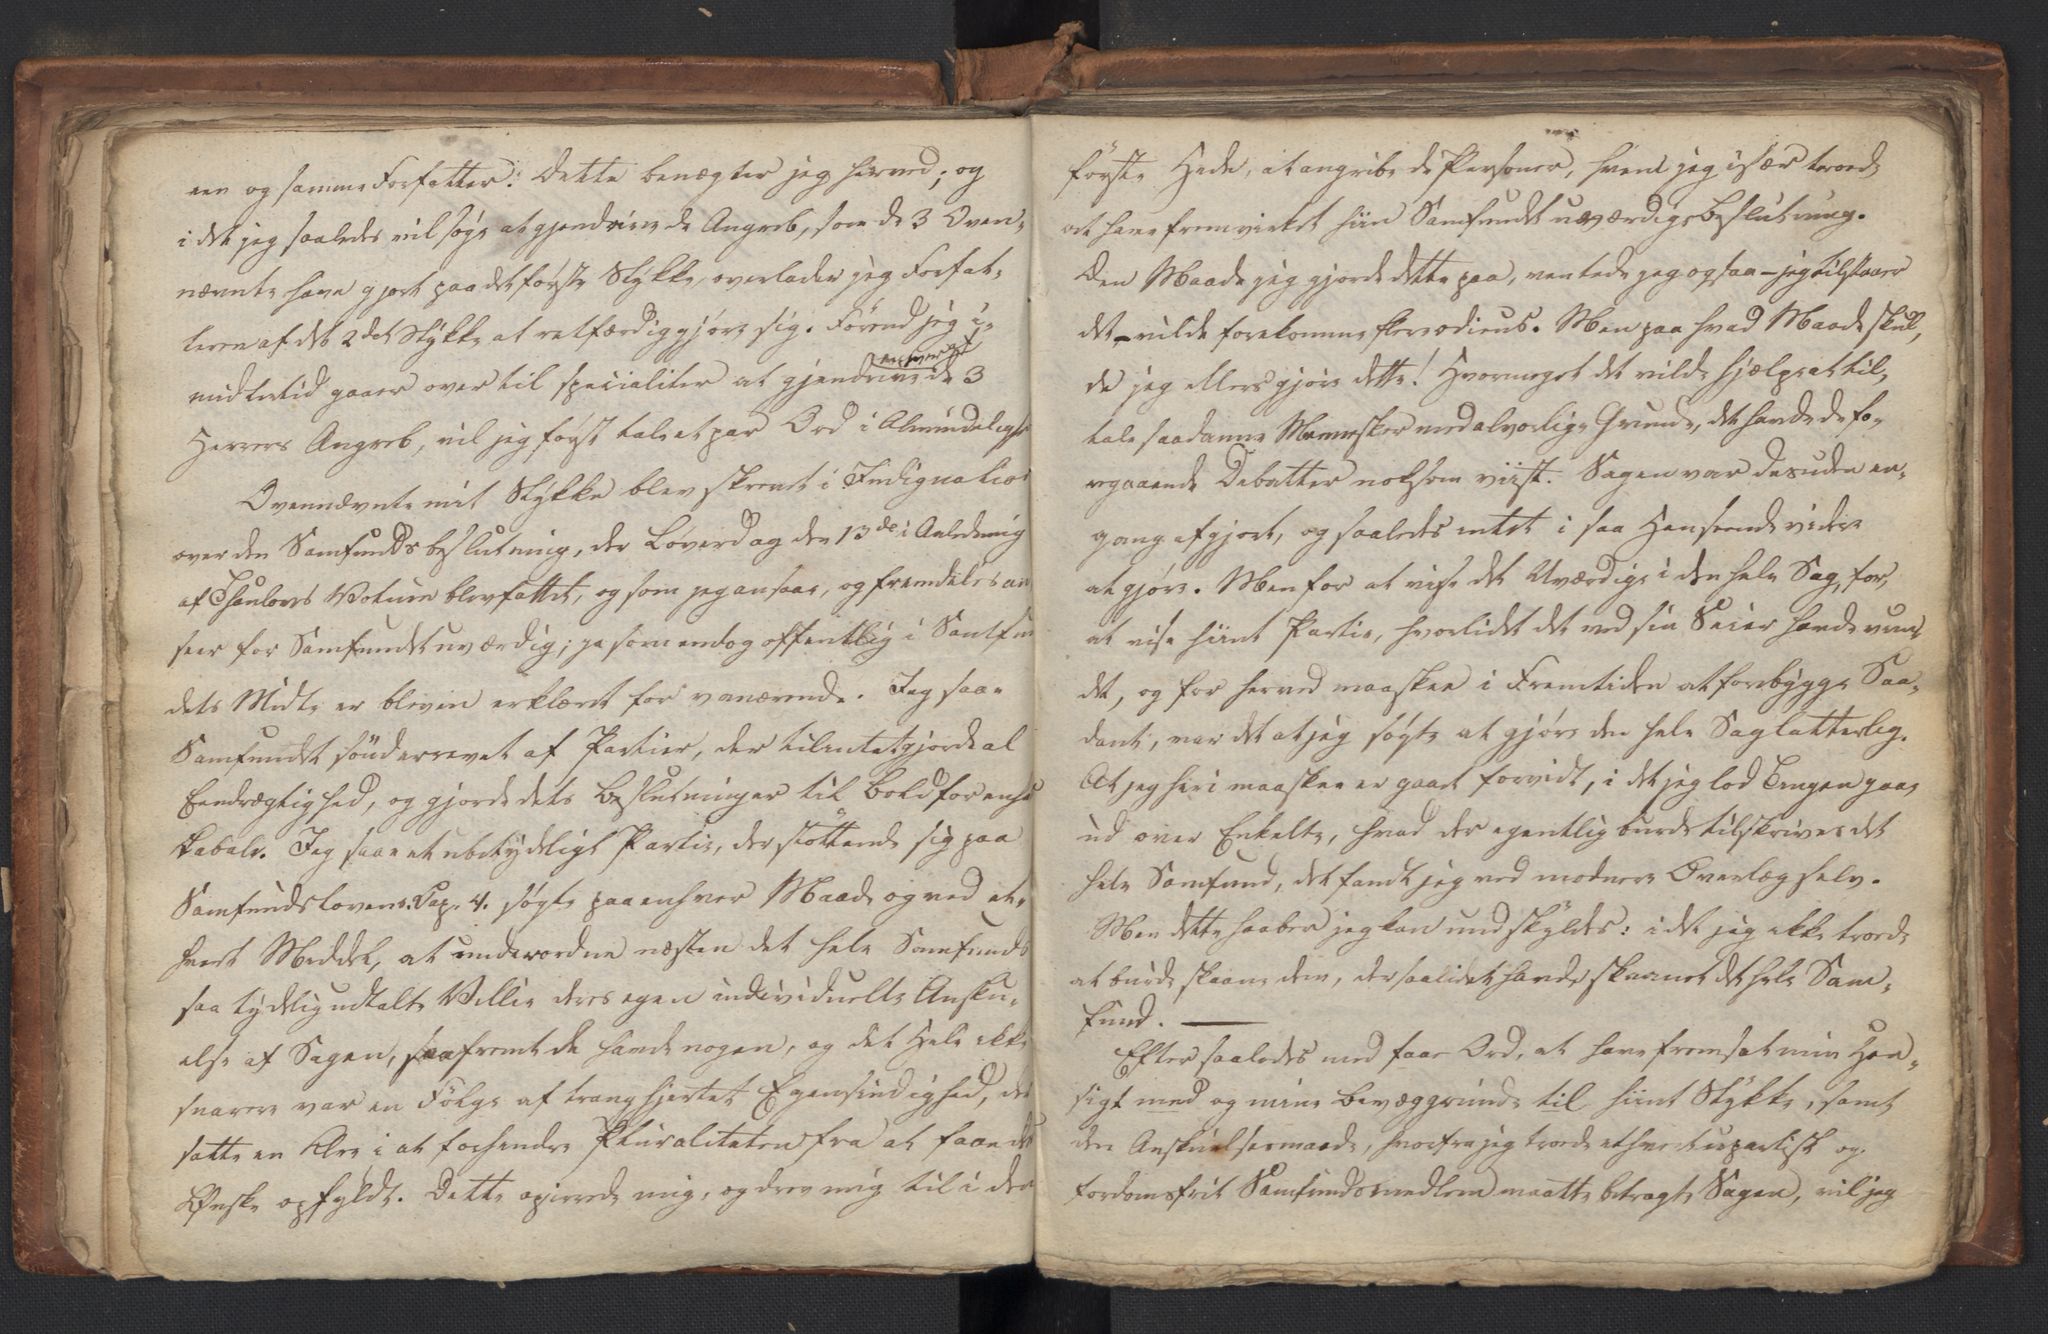 een og samme Forfatter. Dette benægter jeg herved; og
i det jeg saaledes vil søge at gjendrive de Angreb, som de 3 Oven-
nævnte have gjort paa det første Stykke, overlader jeg Forfat-
teren af det 2det Stykke at retfærdiggjøre sig. Førend jeg i-
midlertid gaaer over til specialiter at gjendrive de 3
Herrers Angreb, vil jeg først tale et par Ord i Almindelighed
Ovennævnte mit Stykke blev skrevet i Indignation
over den Samfundsbeslutning, der Løverdag den 13de i Anledning
af Thaulows Votum blev fattet, og som jeg ansaae, og fremdeles an
seer for Samfundet uværdig; ja som endog offentlig i Samfun
dets Midte er bleven erklæret for vanærende. Jeg saae
Samfundet sönderrevet af Partier, der tilintetgjorde al
Eendrægtighed, og gjorde dets Beslutninger til Bold for enhver
Kabale. Jeg saae et ubetydeligt Partie, der støttende sig paa
Samfundslovens Cap. 4. søgte paa enhver Maade og ved et-
hvert Middel, at underordne næsten det hele Samfunds
saa tydelig udtalte Villie deres egen individuelle Ansku-
else af Sagen, saafremt de havde nogen, og det Hele ikke
snarere var en Følge af tranghjertet Egensindighed, der
satte en Ære i at forhindre Pluraliteten fra at faae det
Ønske opfyldt. Dette opirrede mig, og drev mig til i den
første Hede, at angribe de Personer, hvem jeg især troede
at have fremvirket hiin Samfundet uværdige Beslutning.
Den Maade jeg gjorde dette paa, ventede jeg ogsaa – jeg tilstaaer
det – vilde forekomme flere odieus. Men paa hvad Maade skul-
de jeg ellers gjøre dette! Hvormeget det vilde hjælpe at til-
tale saadanne Mennesker med alvorlige Grunde, det havde de fo-
regaaende Debatter noksom viist. Sagen var desuden en-
gang afgjort, og saaledes intet i saa Henseende videre
at gjøre. Men for at vise det Uværdige i den hele Sag, for
at vise hiint Partie, hvorlidet det ved sin Seier havde vun-
det, og for herved maaskee i Fremtiden at forebygge Saa-
dant, var det at jeg søgte at gjøre den hele Sag latterlig.
At jeg heri maaskee er gaaet forvidt, i det jeg lod Svøben gaae
ud over Enkelte, hvad der egentlig burde tilskrives det
hele Samfund, det fandt jeg ved modnere Overlæg selv.
Men dette haaber jeg kan undskyldes: i det jeg ikke troede
at burde skaane dem, der saalidet havde skaanet det hele Sam-
fund. —
Efter saaledes med faae Ord, at have fremsat min Hen-
sigt med og mine Bevæggrunde til hiint Stykke, samt
den Anskuelsesmaade, hvorfra jeg troede ethvert upartisk og
fordomsfrit Samfundsmedlem maatte betragte Sagen, vil jeg